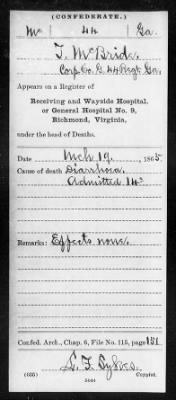 (CONFEDERATE.)
Mc 44 Ga.
T. McBride
Corp. Co. G. 44 Regt. Ga.
Appears on a Register of
Receiving and Wayside Hospital,
or General Hospital No. 9,
Richmond, Virginia,
under the head of Deaths.
Date Mch 19, 1865
Cause of death Diarrhoea.
Admitted 14th
Remarks: Effects none.
Confed. Arch., Chap. 6, File No. 115, page 151
Copyist.